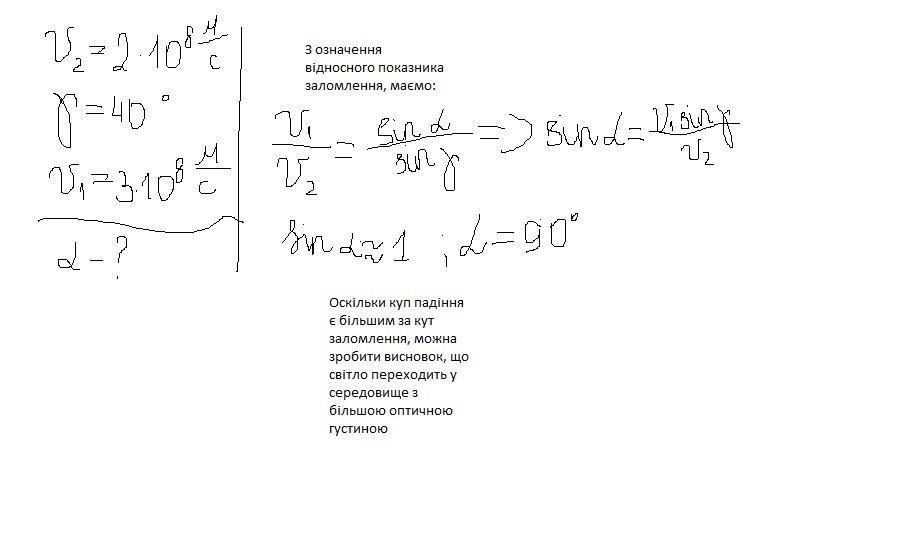 υ₂ = 2 · 10⁸ м/с
γ = 40°
υ₁ = 3 · 10⁸ м/с
α - ?
З означення
відносного показника
заломлення, маємо:
υ₁/υ₂ = sin α/sin γ => sin α = υ₁ sin γ/υ₂
sin α ≈ 1 ; α = 90°
Оскільки куп падіння
є більшим за кут
заломлення, можна
зробити висновок, що
світло переходить у
середовище з
більшою оптичною
густиною